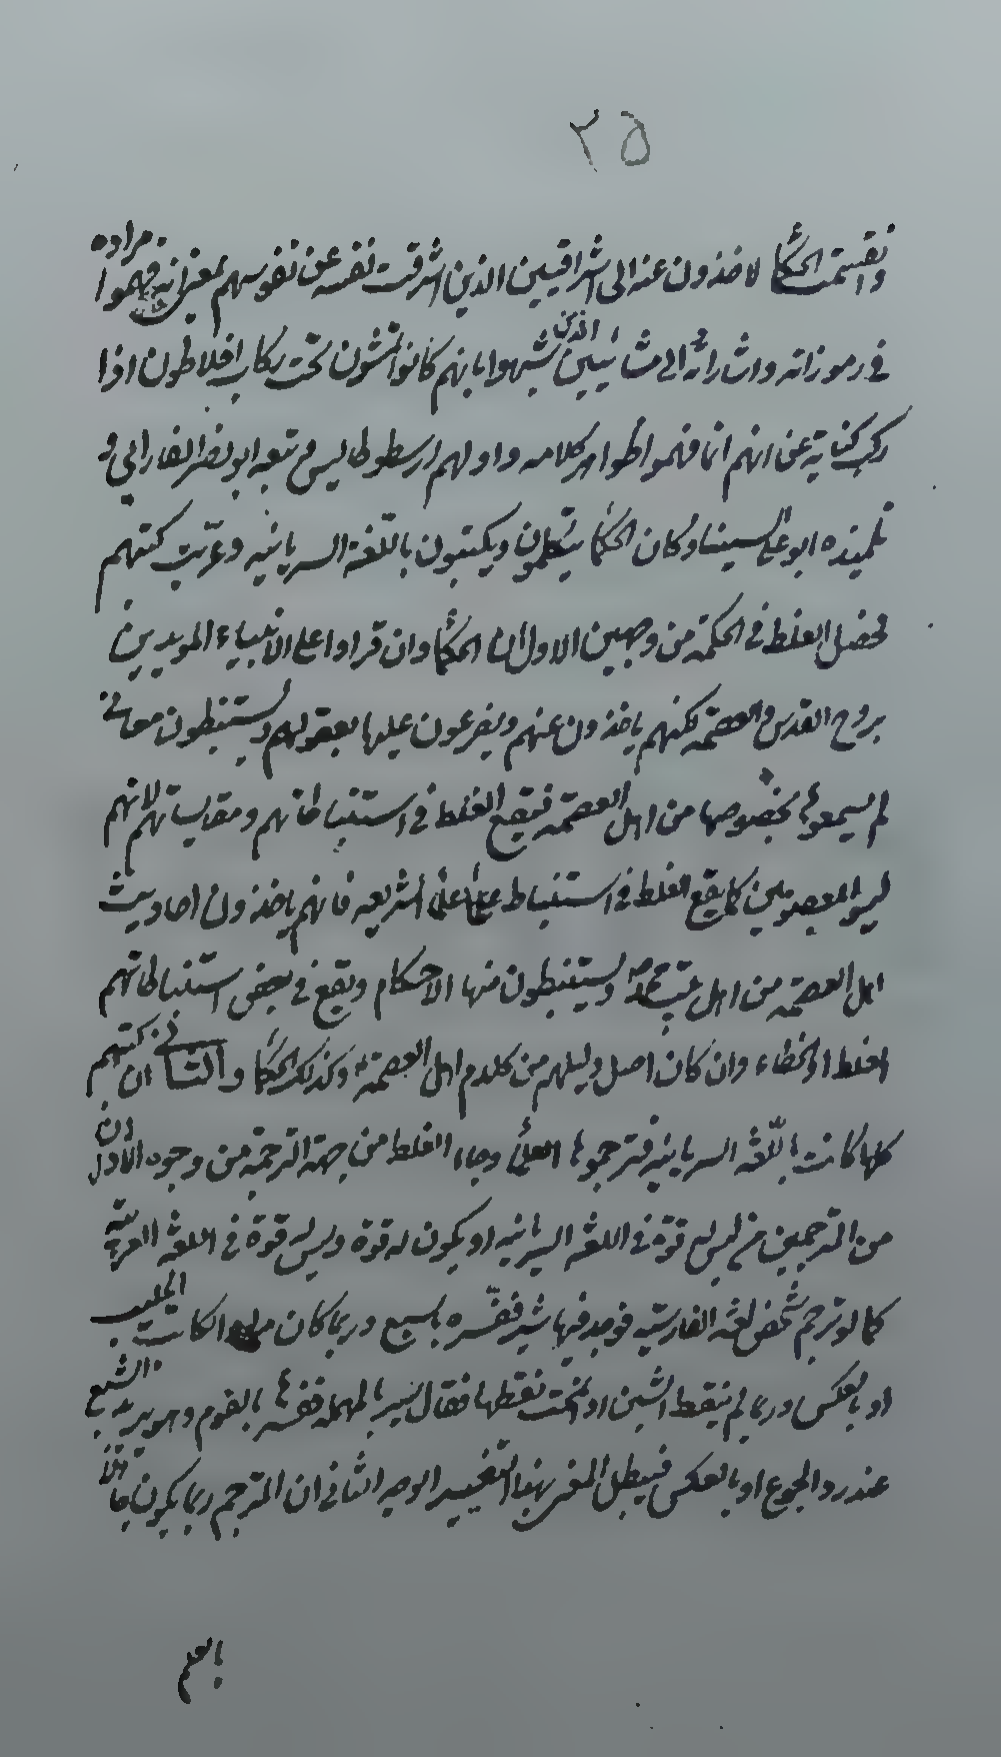 ٣٥
وانقسمت الحكماء الاخذون عنه الى اشراقيين الذين اشرقت نفسه عن نفوسهم بمعنى انهم فهموا مراده
في رموزاته واشاراته والى مشائيين الذين شبهوا بانهم كانوا يمشون تحت ركاب افلاطون اذا
ركب كناية عن انهم انما فهموا ظواهر كلامه واولهم ارسطوطاليس و تبعه ابو نصر الفارابي و
تلميذه ابو على السينا وكان الحكماء يتكلمون ويكتبون باللغة السريانيه وعربت كتبهم
فحصل الغلط في الحكمة من وجهين الاول ان الحكماء وان قراوا على الانبياء المويدين
بروح القدس والعصمة لكنهم ياخذون عنهم ويفرعون عليها بعقولهم ويستنبطون معاني
لم يسمعوها بخصوصها من اهل العصمة فيقع الغلط في استنباطاتهم ومقايساتهم لانهم
ليسوا بمعصومين كما يقع الغلط في استنباط علماء الشريعه فانهم ياخذون احاديث
اهل العصمة من اهل بيت محمد ص ويستنبطون منها الاحكام ويقع في بعض استنباطاتهم
الغلط او الخطاء وان كان اصل دليلهم من كلام اهل العصمة وكذلك الحكماء والثاني ان كتبهم
كلها كانت باللغة السريانيه فترجموها العلماء وجاء الغلط من جهة الترجمة من وجوه الاول ان
من المترجمين من ليس له قوة في اللغة السريانيه او يكون له قوة وليس له قوة في اللغة العربية
كما لو ترجم شخص لغة الفارسية فوجد فيها شير ففسره بالسبع وربما كان مراد الكاتب الحليب
او بالعكس وربما لم ينقط الشين او انمحت نقطها فقال سير بالمهملة ففسرها بالثوم وهو يريد الشبع
عند رد الجوع او بالعكس فيبطل المعنى بهذا التغيير الوجه الثاني ان المترجم ربما يكون جاهلا
بالعلم